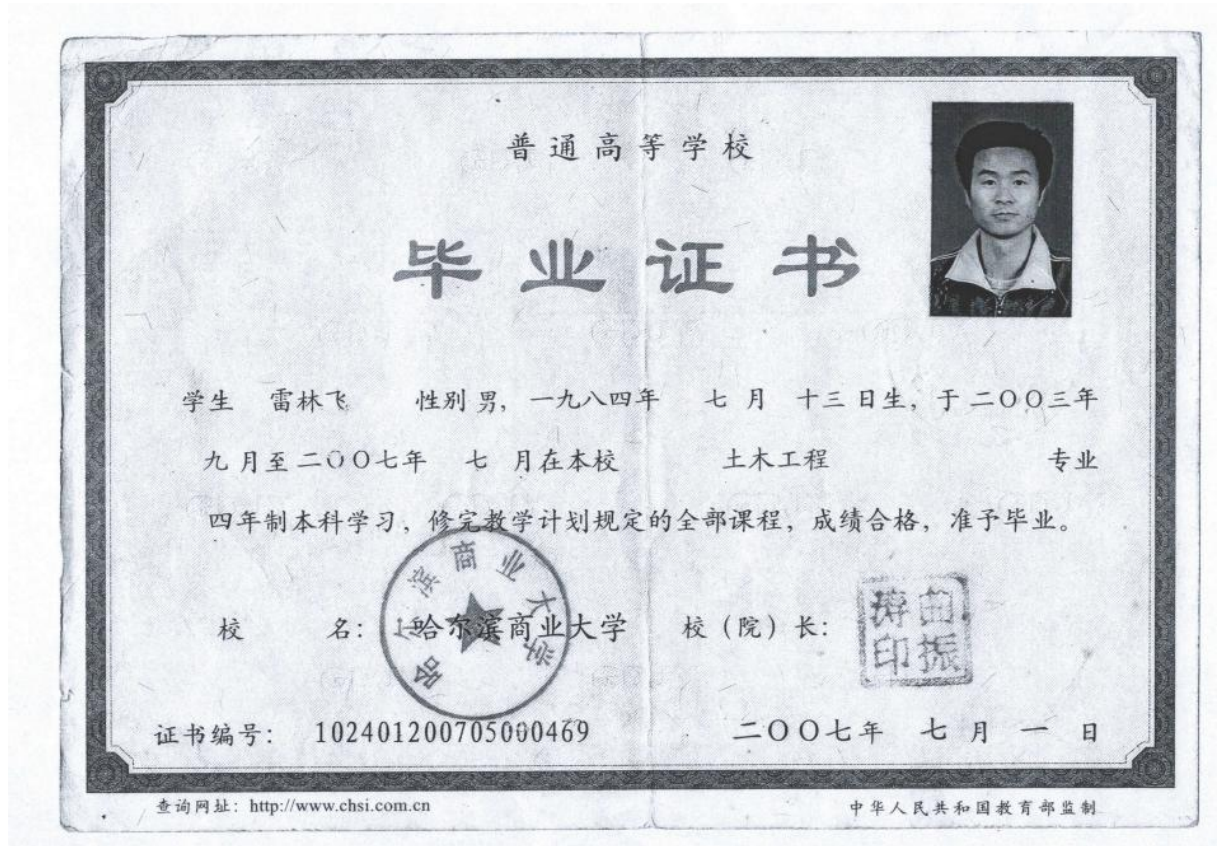 普通高等学校
毕业证书
学生 雷林飞 性别 男, 一九八四年 七 月 十三 日生, 于 二〇〇三年
九 月至 二〇〇七年 七 月在本校 土木工程 专业
四年制本科学习, 修完教学计划规定的全部课程, 成绩合格, 准予毕业。
哈尔滨商业大学
校 名: 哈尔滨商业大学 校（院）长:
证书编号: 102401200705000469 二〇〇七年 七 月 一 日
查询网址: http://www.chsi.com.cn 中华人民共和国教育部监制